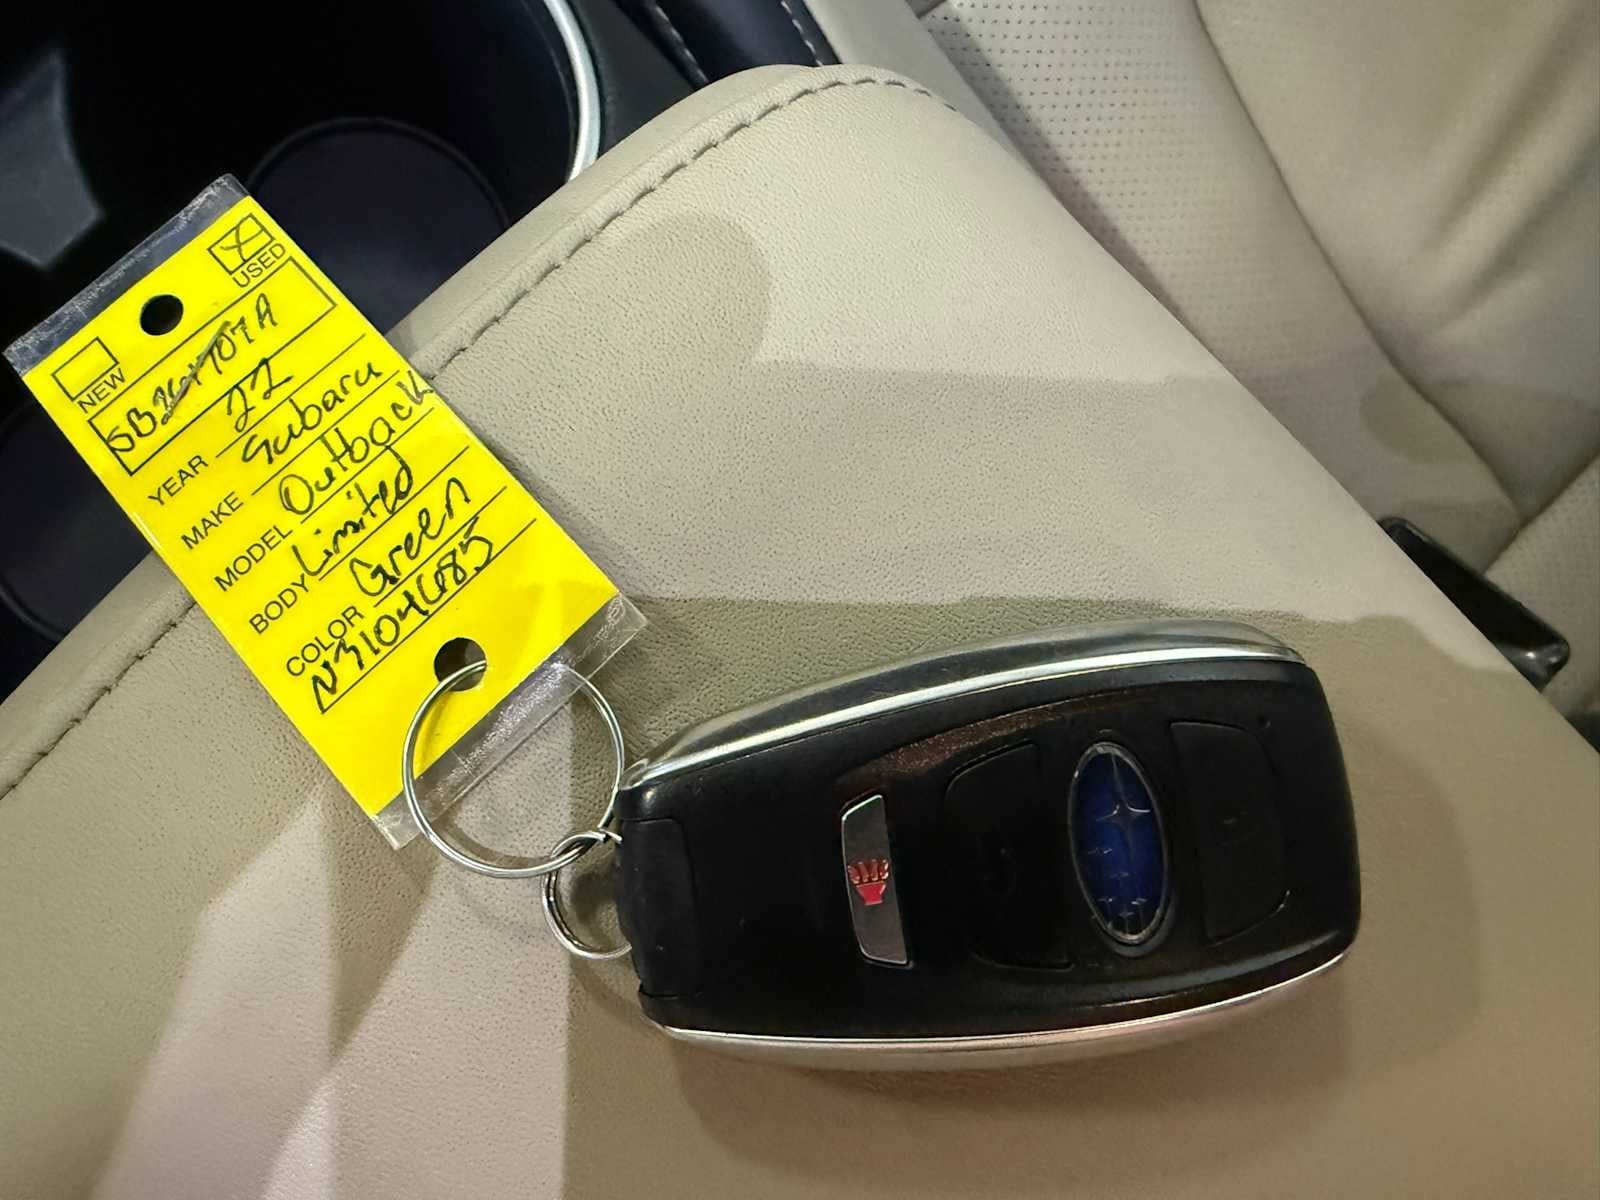 USED
NEW
YEAR 22
MAKE Subaru
MODEL Outback
BODY Limited
COLOR Green